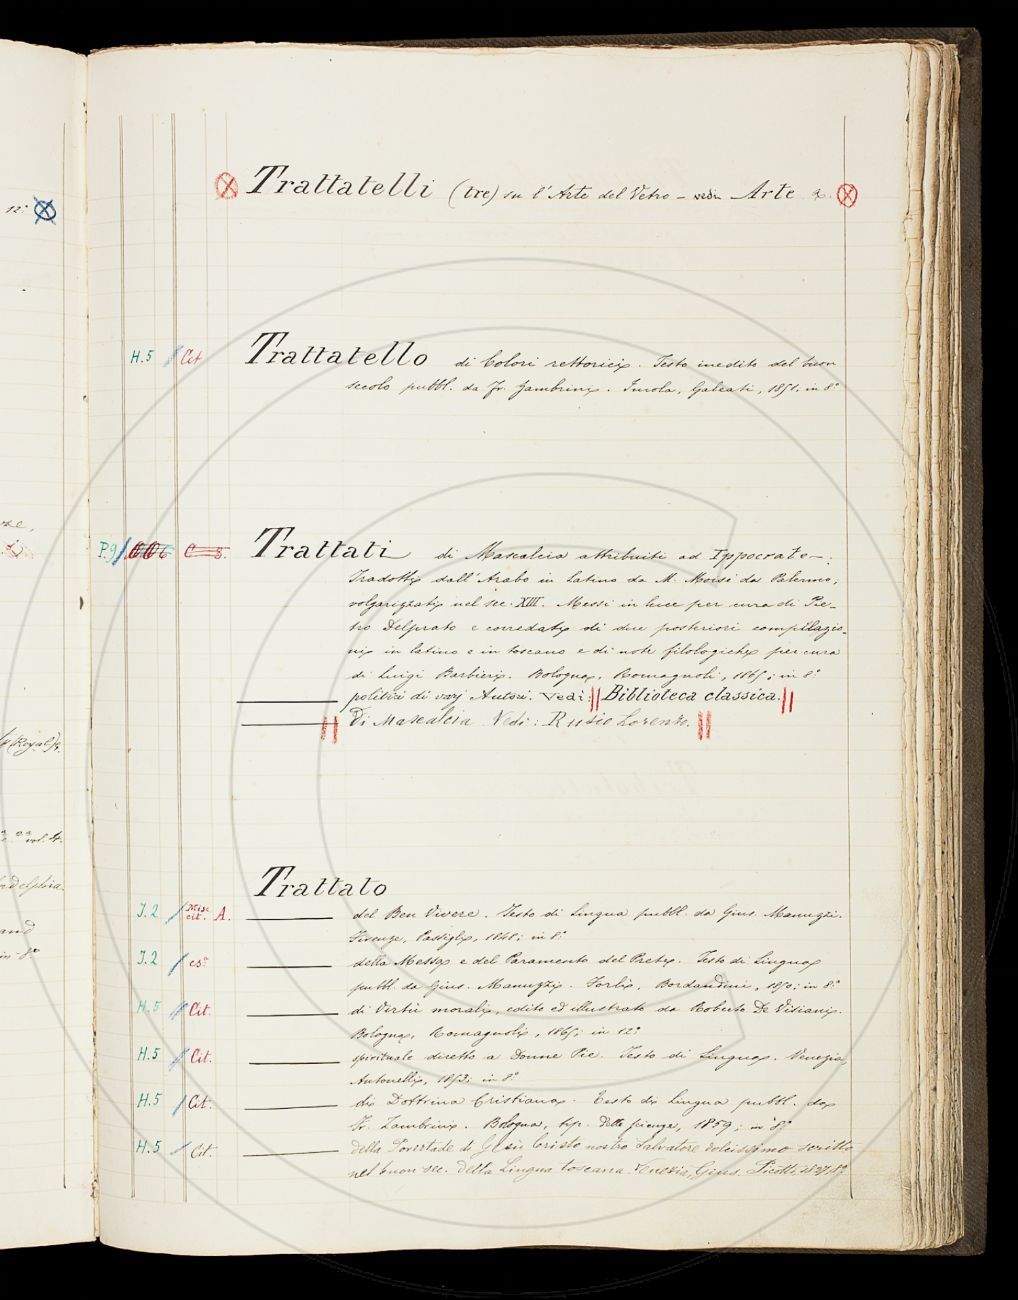 12°
Trattatelli (tre) su l'Arte del Vetro - vedi Arte &.
H.5 Cit Trattatello di Colori rettorici. Testo inedito del buon
secolo pubbl. da Fr. Zambrini. Imola, Galeati, 1851. in 8°
P.9 Trattati di Mascalcia attribuiti ad Ippocrate.
Tradotti dall'Arabo in Latino da M. Moisè da Palermo;
volgarizzati nel sec. XIII. Messi in luce per cura di Pie-
tro Delprato e corredati di due posteriori compilazio-
ni in latino e in toscano e di note filologiche per cura
di Luigi Barbieri. Bologna, Romagnoli, 1865; in 8°
politici di varj Autori. Vedi: Biblioteca classica.
Di Mascalcia Vedi: Rusio Lorenzo.
(Royal)
vol. 4.
Trattato
J.2 Misc cit. A. del Ben Vivere. Testo di Lingua pubbl. da Gius. Manuzzi.
Firenze, Passigli, 1848; in 8°
J.2 cs° della Messa e del Paramento del Prete. Testo di Lingua
pubbl. da Gius. Manuzzi. Forlì, Bordandini, 1850; in 8°
H.5 Cit. di Virtù morali, edito ed illustrato da Roberto De Visiani.
Bologna, Romagnoli, 1865; in 12°
H.5 Cit. spirituale diretto a Donne Pie. Testo di Lingua. Venezia,
Antonelli, 1853; in 8°
H.5 Cit. di Dottrina Cristiana. Testo di Lingua pubbl. da
Fr. Zambrini. Bologna, tip. delle scienze, 1859; in 8°
H.5 Cit. della Povertade di Gesù Cristo nostro Salvatore dolcissimo scritto
nel buon sec. della Lingua toscana Venezia, Gius. Picotti, 1827, 8°
in 8°